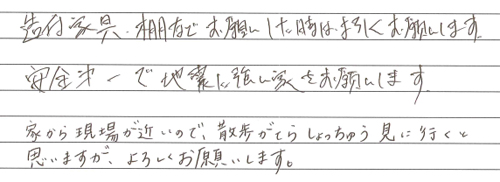 造付家具、棚などお願いした時はよろしくお願いします。
安全第一で地震に強い家をお願いします
家から現場が近いので、散歩がてらしょっちゅう見に行くと
思いますが、よろしくお願いします。